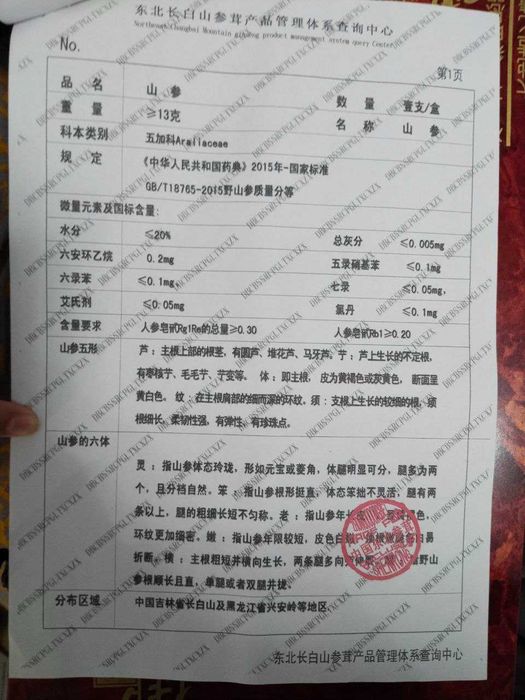 东北长白山参茸产品管理体系查询中心
Northeast Changbai Mountain ginseng product management system query Center
No.
第1页
品 名 山 参 数 量 壹支/盒
重 量 ≥13克 名 称 山 参
科本类别 五加科Araliaceae
规 定 《中华人民共和国药典》2015年-国家标准
GB/T18765-2015野山参质量分等
微量元素及国标含量:
水分 ≤20% 总灰分 ≤0.005mg
六安环乙烷 0.2mg 五录硝基苯 ≤0.1mg
六录苯 ≤0.1mg, 七录 ≤0.05mg,
艾氏剂 ≤0.05mg 氯丹 ≤0.1mg
含量要求 人参皂甙Rg1Re的总量≥0.30 人参皂甙Rb1≥0.20
山参五形 芦:主根上部的根茎,有圆芦、堆花芦、马牙芦。艼:芦上生长的不定根,
有枣核艼、毛毛艼、艼变等。 体:即主根, 皮为黄褐色或灰黄色, 断面呈
黄白色。 纹:在主根肩部的细而深的环纹。须:支根上生长的较细的根、须
根细长,柔韧性强,有弹性,有珍珠点。
山参的六体 灵:指山参体态玲珑,形如元宝或菱角,体腿明显可分,腿多为两
个,且分裆自然。笨:指山参根形挺直,体态笨拙不灵活,腿有两
条以上,腿的粗细长短不匀称。老:指山参年长 色,
环纹更加细密。嫩:指山参年限较短,皮色白 易
折断。横:主根粗短并横向生长,两条腿多向 野山
参根顺长且直,单腿或者双腿并拢。
分布区域 中国吉林省长白山及黑龙江省兴安岭等地区
东北长白山参茸产品管理体系查询中心
DBCBSSRCPGLTXCXZX